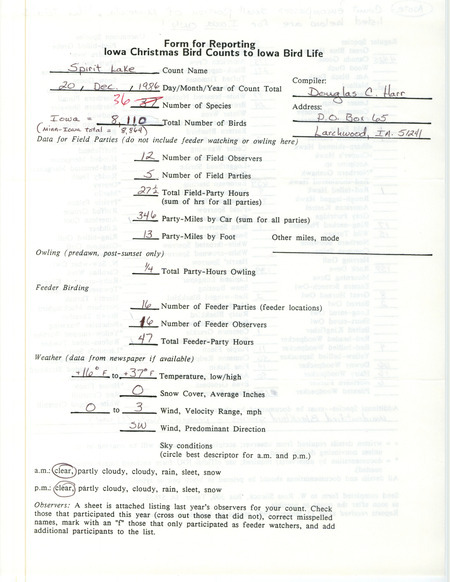 Form for Reporting
Iowa Christmas Bird Counts to Iowa Bird Life
Spirit Lake Count Name
20, Dec., 1986 Day/Month/Year of Count Total
Compiler:
Douglas C. Harr
36 37 Number of Species
Address:
P.O. Box 65
Larchwood, IA 51241
Iowa = 8,110 Total Number of Birds
(Minn-Iowa Total = 8,864)
Data for Field Parties (do not include feeder watching or owling here)
12 Number of Field Observers
5 Number of Field Parties
27½ Total Field-Party Hours
(sum of hrs for all parties)
346 Party-Miles by Car (sum for all parties)
13 Party-Miles by Foot Other miles, mode
Owling (predawn, post-sunset only)
¼ Total Party-Hours Owling
Feeder Birding
16 Number of Feeder Parties (feeder locations)
16 Number of Feeder Observers
47 Total Feeder-Party Hours
Weather (data from newspaper if available)
+16° F to +37° F Temperature, low/high
0 Snow Cover, Average Inches
0 to 3 Wind, Velocity Range, mph
SW Wind, Predominant Direction
Sky conditions
(circle best descriptor for a.m. and p.m.)
a.m.: clear, partly cloudy, cloudy, rain, sleet, snow
p.m.: clear, partly cloudy, cloudy, rain, sleet, snow
Observers: A sheet is attached listing last year's observers for your count. Check
those that participated this year (cross out those that did not), correct misspelled
names, mark with an "f" those that only participated as feeder watchers, and add
additional participants to the list.